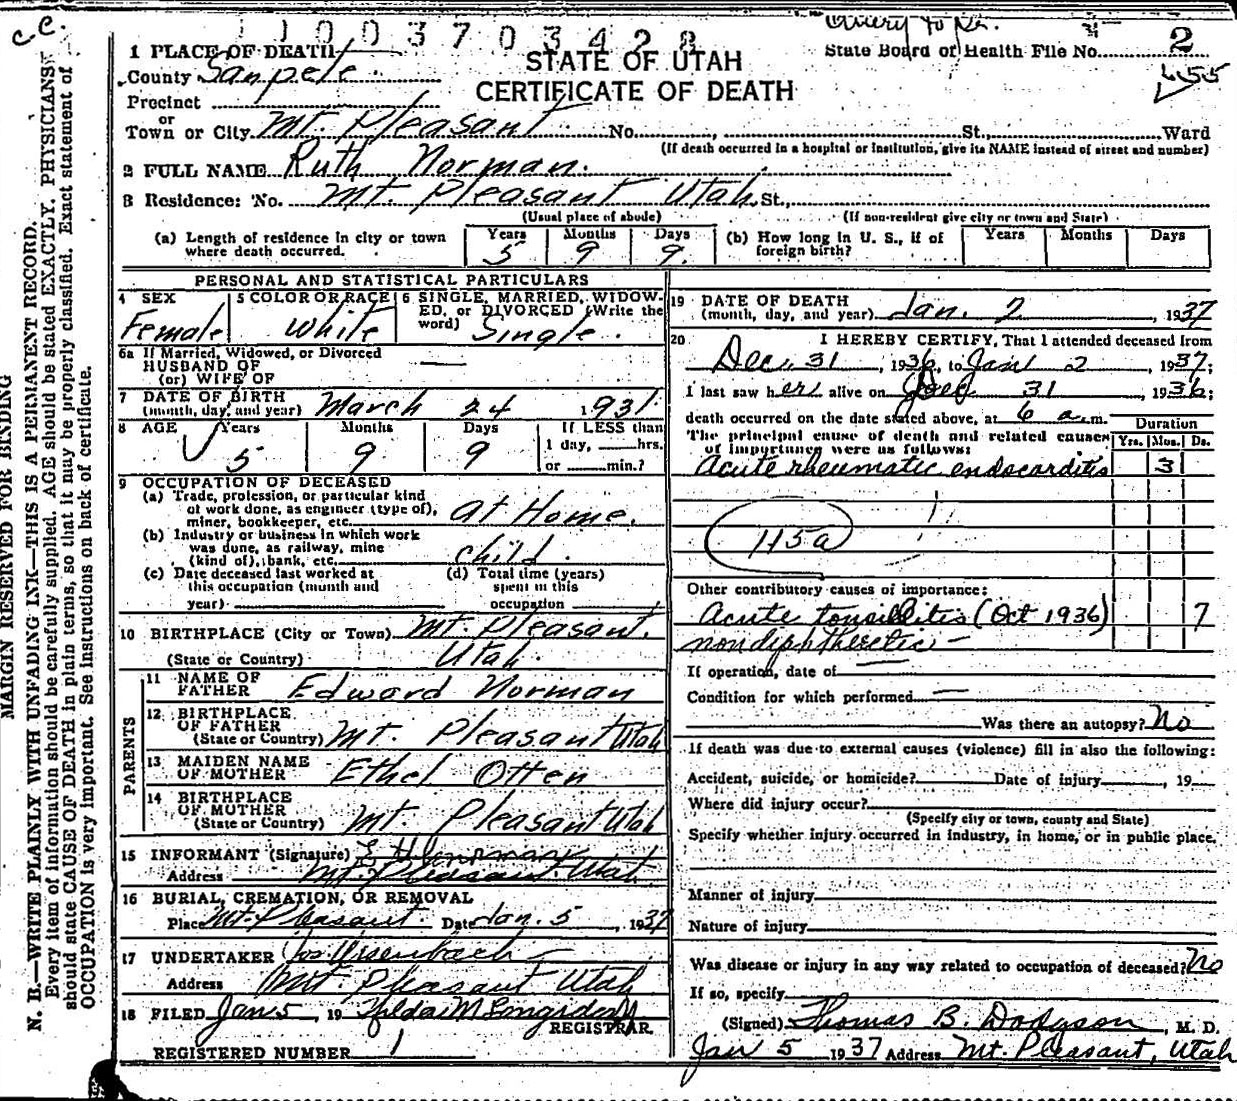 cc.
1 1 0 0 3 7 0 3 4 2 8
Query to Dr.
1 PLACE OF DEATH
County Sanpete.
Precinct
or
Town or City Mt. Pleasant No. , St., Ward
(If death occurred in a hospital or institution, give its NAME instead of street and number)
STATE OF UTAH
CERTIFICATE OF DEATH
State Board of Health File No. 2
455
2 FULL NAME Ruth Norman.
3 Residence: No. Mt. Pleasant Utah St.,
(Usual place of abode) (If non-resident give city or town and State)
(a) Length of residence in city or town where death occurred. Years 5 Months 9 Days 9.
(b) How long in U. S., if of foreign birth? Years Months Days
PERSONAL AND STATISTICAL PARTICULARS
4 SEX Female
5 COLOR OR RACE White
6 SINGLE, MARRIED, WIDOWED, or DIVORCED (Write the word) Single.
6a If Married, Widowed, or Divorced
HUSBAND OF —
(or) WIFE OF
7 DATE OF BIRTH
(month, day, and year) March 24 1931
8 AGE Years 5 Months 9 Days 9 If LESS than 1 day, hrs. or min.?
9 OCCUPATION OF DECEASED
(a) Trade, profession, or particular kind
of work done, as engineer (type of),
miner, bookkeeper, etc. at Home.
(b) Industry or business in which work
was done, as railway, mine
(kind of), bank, etc. child.
(c) Date deceased last worked at
this occupation (month and
year)
(d) Total time (years)
spent in this
occupation
10 BIRTHPLACE (City or Town) Mt. Pleasant.
(State or Country) Utah.
PARENTS
11 NAME OF FATHER Edward Norman
12 BIRTHPLACE OF FATHER
(State or Country) Mt. Pleasant Utah
13 MAIDEN NAME OF MOTHER Ethel Otten
14 BIRTHPLACE OF MOTHER
(State or Country) Mt Pleasant Utah
15 INFORMANT (Signature) E H Norman
Address Mt. Pleasant. Utah
16 BURIAL, CREMATION, OR REMOVAL
Place Mt. Pleasant Date Jan. 5, 1937
17 UNDERTAKER
Address Mt. Pleasant Utah
18 FILED Jan 5, 19 Hilda M
REGISTRAR.
REGISTERED NUMBER 1
19 DATE OF DEATH
(month, day, and year) Jan. 2, 1937
20 I HEREBY CERTIFY, That I attended deceased from
Dec. 31, 1936, to Jan 2, 1937;
I last saw her alive on Dec 31, 1936;
death occurred on the date stated above, at 6 a.m.
The principal cause of death and related causes
of importance were as follows:
Duration
Yrs. Mos. Ds.
Acute rheumatic endocarditis 3
115a
Other contributory causes of importance:
Acute tonsillitis (Oct 1936) 7
nondiphtheretic —
If operation, date of —
Condition for which performed —
Was there an autopsy? No
If death was due to external causes (violence) fill in also the following:
Accident, suicide, or homicide? Date of injury , 19
Where did injury occur?
(Specify city or town, county and State)
Specify whether injury occurred in industry, in home, or in public place.
Manner of injury
Nature of injury
Was disease or injury in any way related to occupation of deceased? No
If so, specify
(Signed) Thomas B. Dodgson, M. D.
Jan 5 1937 Address Mt. Pleasant, Utah
MARGIN RESERVED FOR BINDING
N. B.—WRITE PLAINLY WITH UNFADING INK—THIS IS A PERMANENT RECORD.
Every item of information should be carefully supplied. AGE should be stated EXACTLY. PHYSICIANS
should state CAUSE OF DEATH in plain terms, so that it may be properly classified. Exact statement of
OCCUPATION is very important. See instructions on back of certificate.